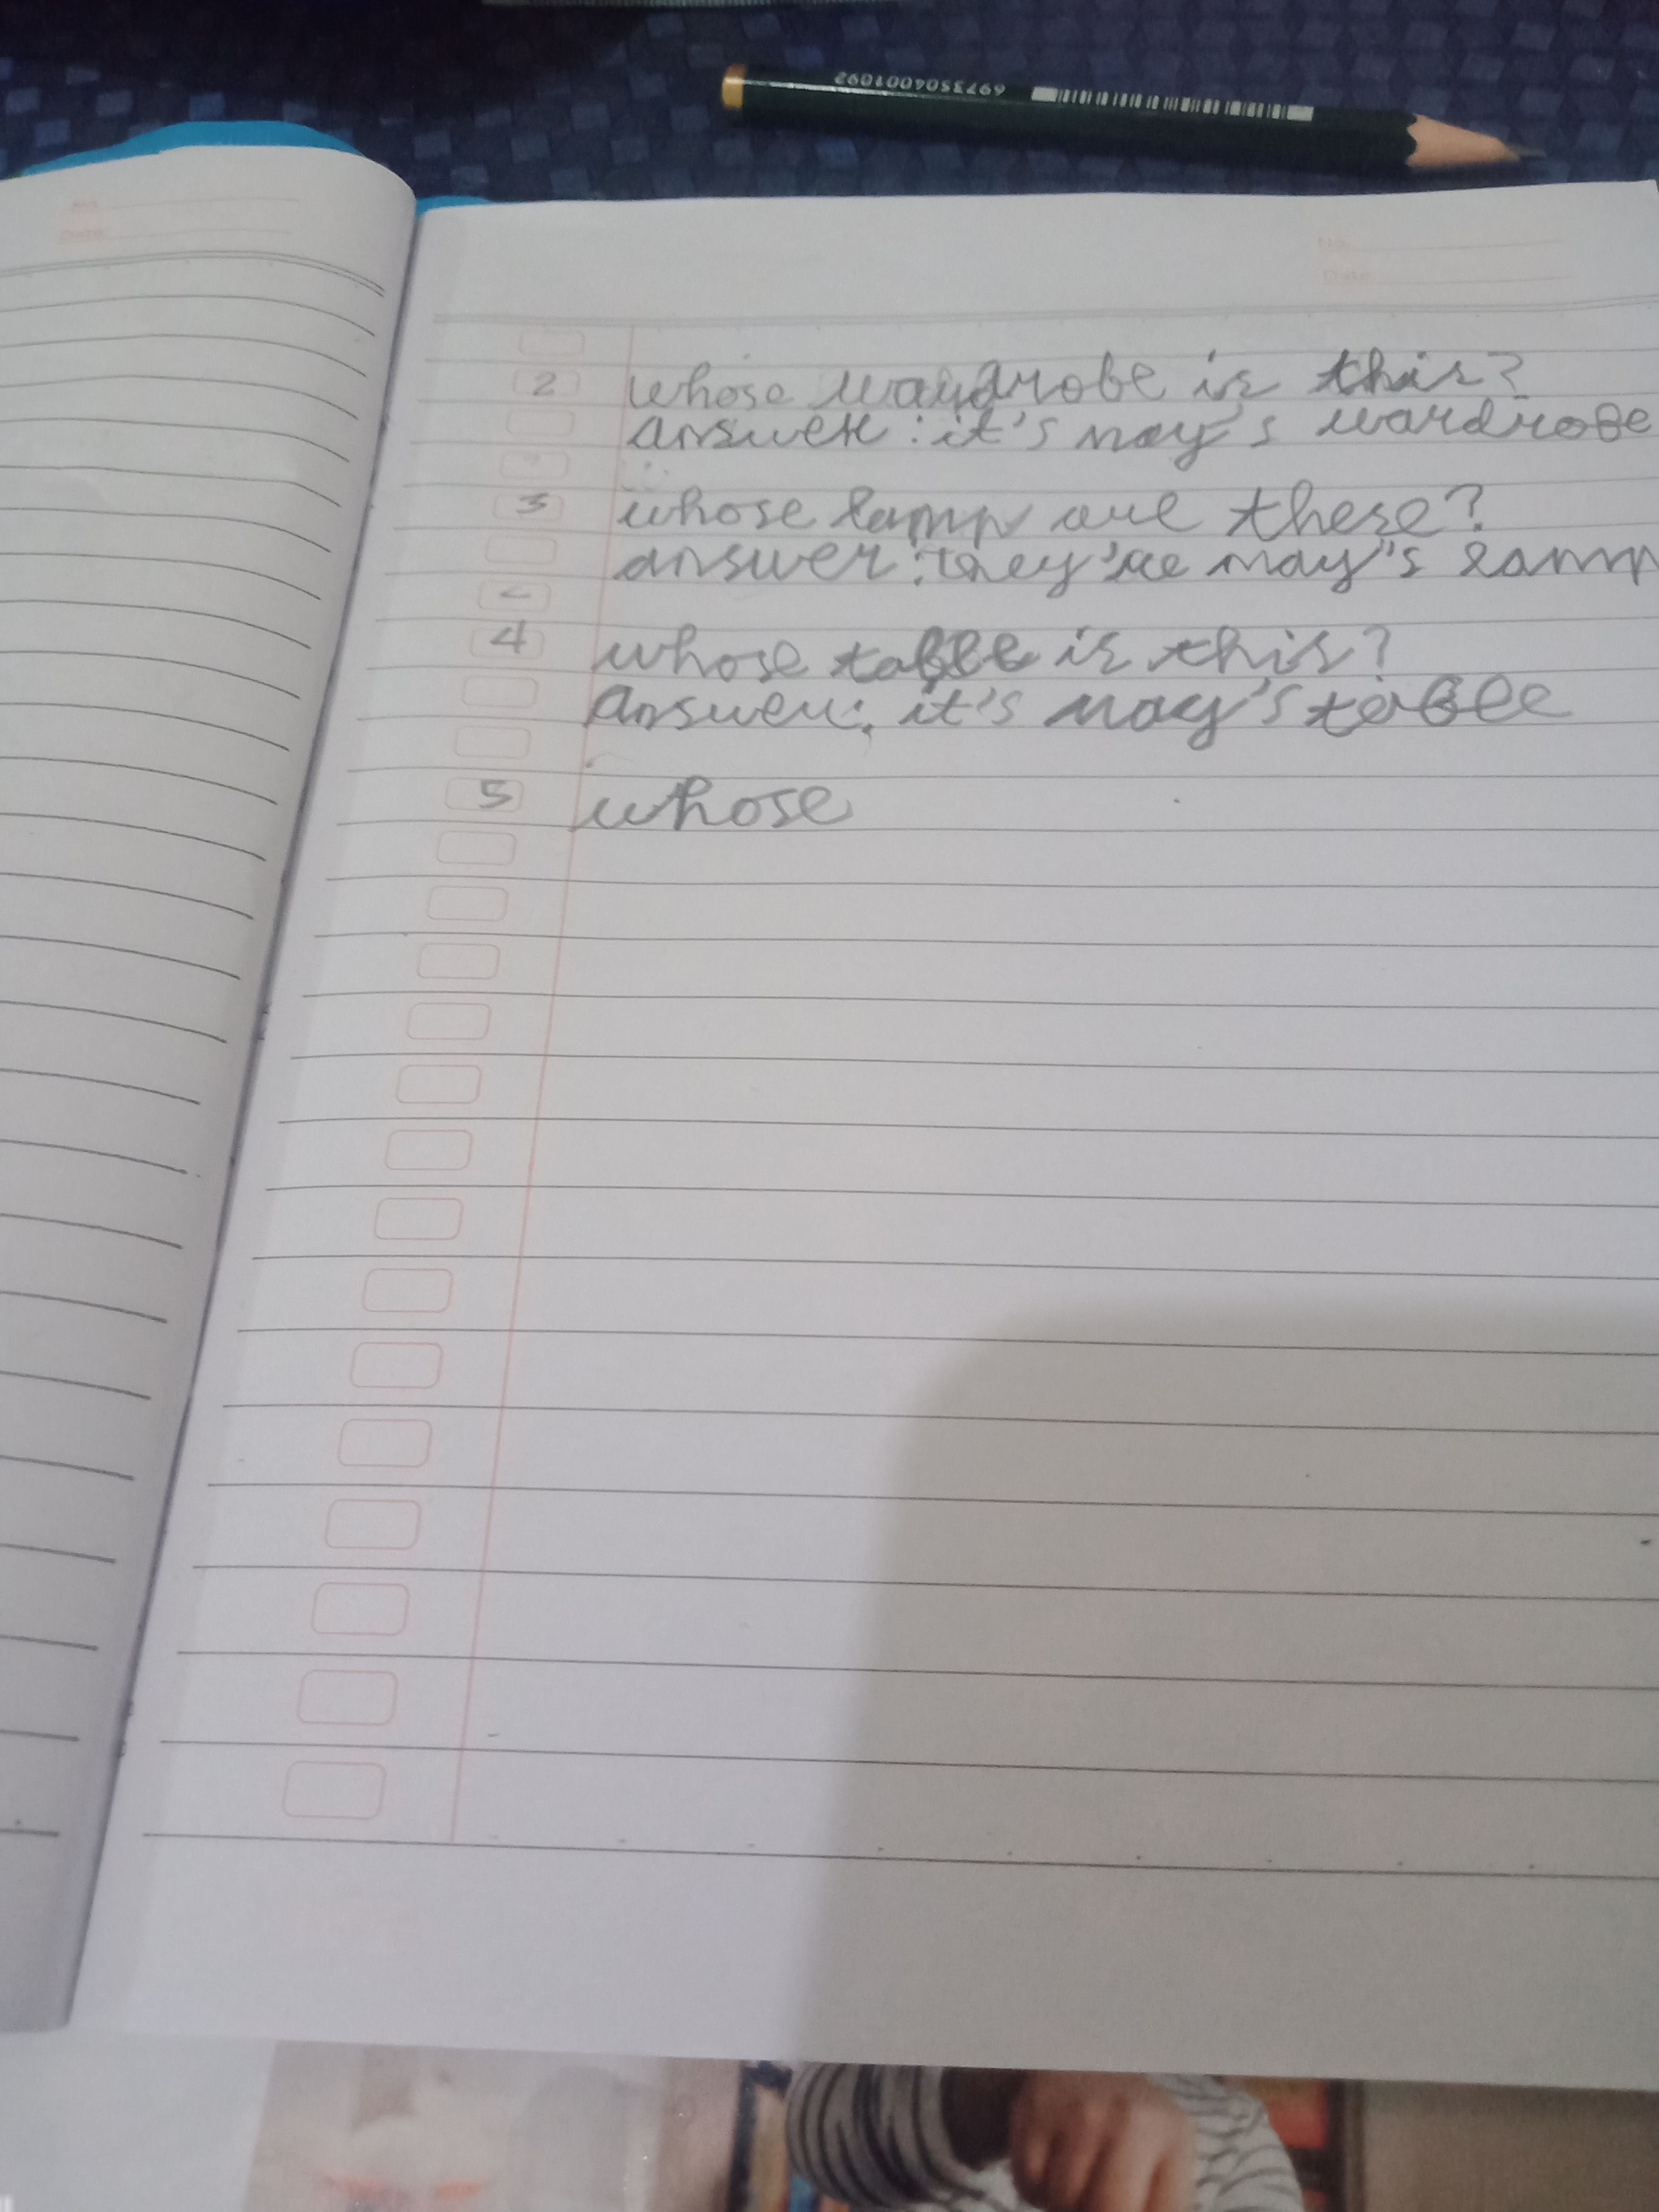 6973504001092
2 whose wardrobe is this?
answer : it's may's wardrobe
3 whose lamp are these?
answer : they're may's lamp
4 whose table is this?
Answer : it's may's table
5 whose